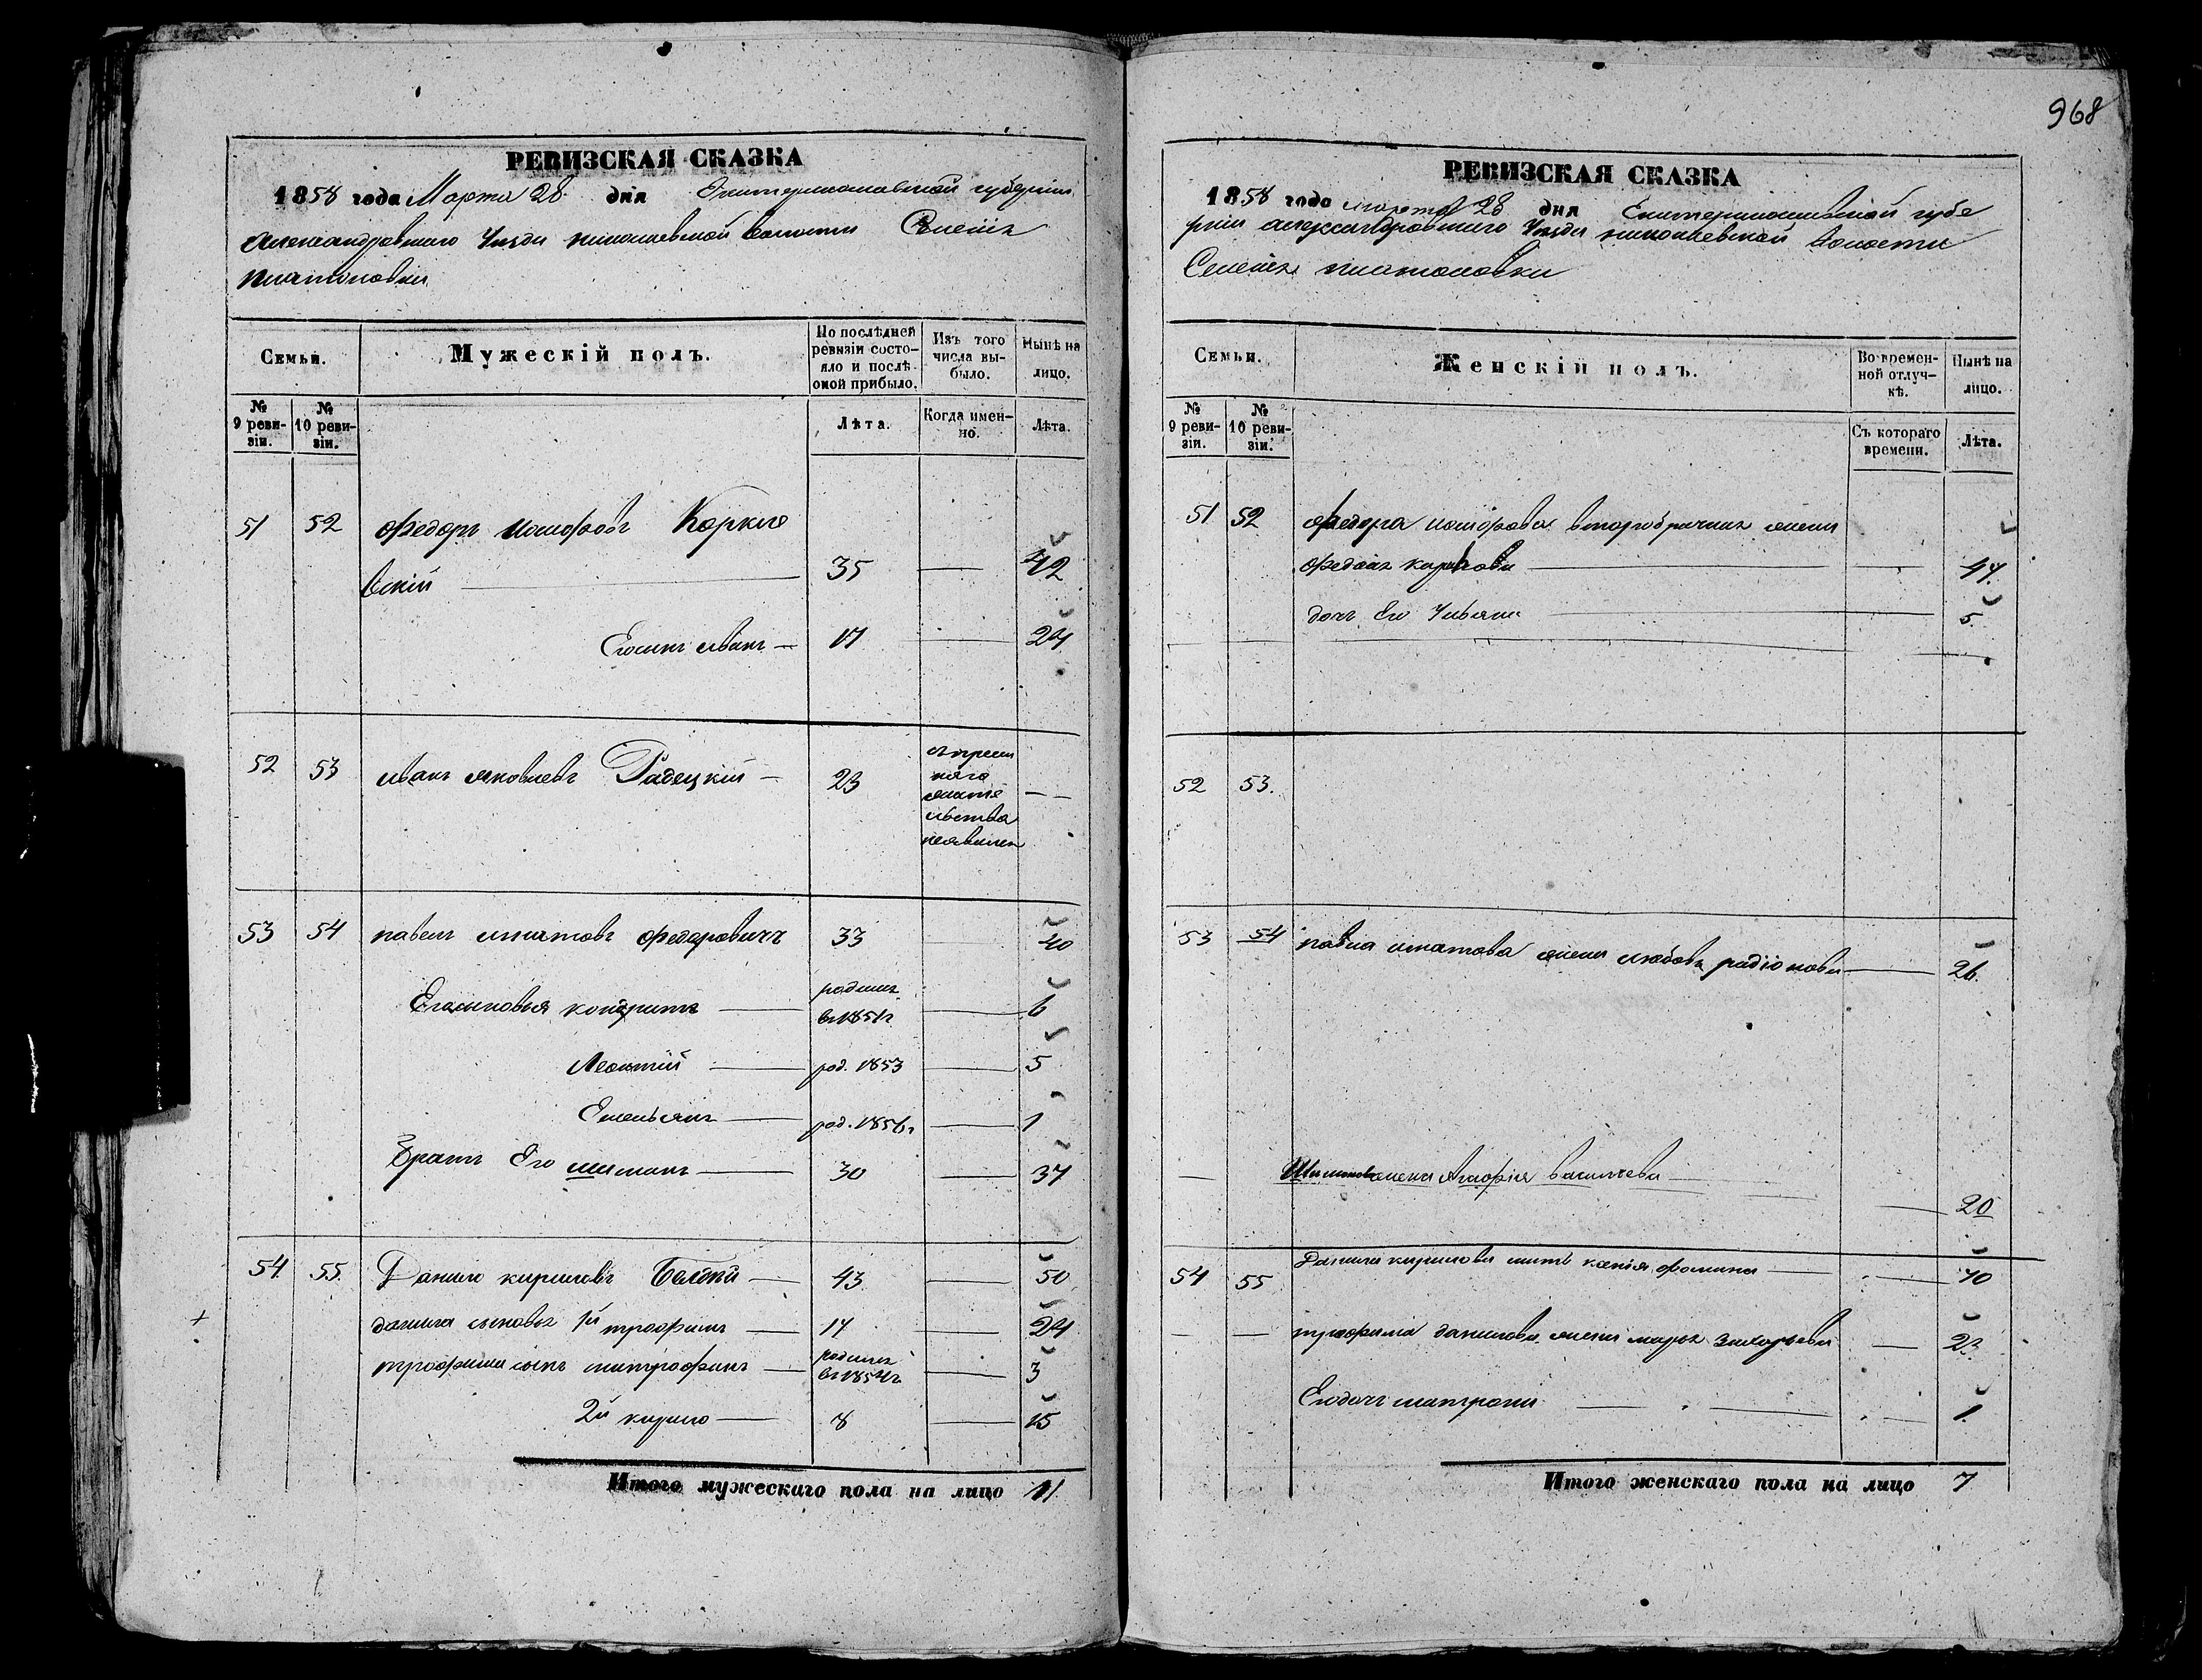 968
РЕВИЗСКАЯ СКАЗКА
1858 года Марта 28 дня Екатеринославской губернии
Александровского Уезда николаевской волости Селенія
платоновки
Семьи.
Мужескій полъ.
По послѣдней ревизіи состояло и послѣ оной прибыло.
Изъ того числа выбыло.
Нынѣ на лицо.
№ 9 ревизіи.
№ 10 ревизіи.
Лѣта.
Когда именно.
Лѣта.
51 52 Федоръ Коркие
вский 35 42
Егосынъ иванъ 17 24
52 53 иванъ яковлевъ Радецкій 23
жите
льства
неявился
53 54 павелъ игнатовъ Федоровичъ 33 40
Егосыновья кондратъ родился в 1851г 6
Леонтий род. 1853 5
Емельянъ род. 1856г 1
Братъ Его 30 37
54 55. Данило кириловъ 43 50
данила сыновья 1й трофимъ 17 24
трофима сынъ митрофанъ родился в 1854г 3
2й кирило 8 15
Итого мужескаго пола на лицо 11
РЕВИЗСКАЯ СКАЗКА
1858 года марта 28 дня Екатеринославской губе
рнии александровского Уезда николаевской волости
Селенія платоновки
Семьи.
Женскій полъ.
Во временной отлучкѣ.
Нынѣ на лицо.
№ 9 ревизіи.
№ 10 ревизіи.
Съ котораго времени.
Лѣта.
51 52 Федора второбрачная жена
Федосія карпова 47.
дочь Его Ульяна 5.
52 53.
53 54 павла игнатова жена любовь радіонова 26.
жена Агафія васильева
20
54 55 Данила кирилова жена ксенія фомина 40
трофима данилова жена марья захарьева 23.
Егодочь матрона 1.
Итого женскаго пола на лицо 7